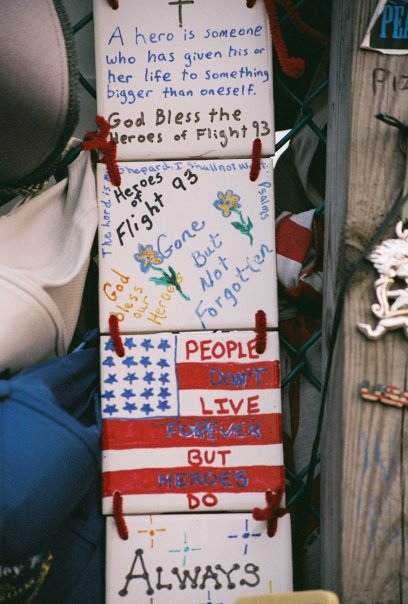 A hero is someone
who has given his or
her life to something
bigger than oneself.
God Bless the
Heroes of Flight 93
The Lord is my Shepard, I shall not want.
Psalms
Heroes
of
Flight 93
Gone
But
Not
Forgotten
God
Bless
our
Heroes
PEOPLE
DON'T
LIVE
FOREVER
BUT
HEROES
DO
ALWAYS